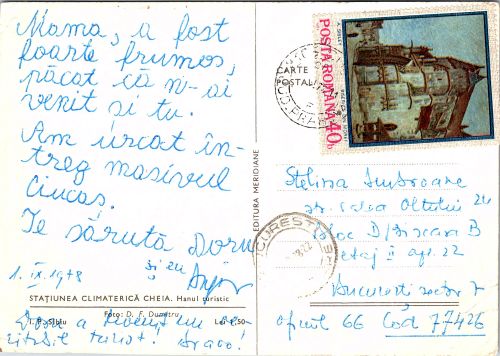 Mama, a fost
foarte frumos,
păcat că n-ai
venit și tu.
Am urcat în-
treg masivul
Ciucaș.
Te sărută Doru
și eu
1.IX.1978
STAȚIUNEA CLIMATERICĂ CHEIA. Hanul turistic
Foto: D. F. Dumitru
I. P. Sibiu
Lei 1,50
Doru a
turist! Bravo!
EDITURA MERIDIANE
CARTE
POSTALĂ
POSTA ROMANA 40b
BUCUREȘTI
Stelina
str. Valea Oltului 24
bloc D/Scara B
etaj II ap. 22
București sector 7
oficiul 66 Cod 77426